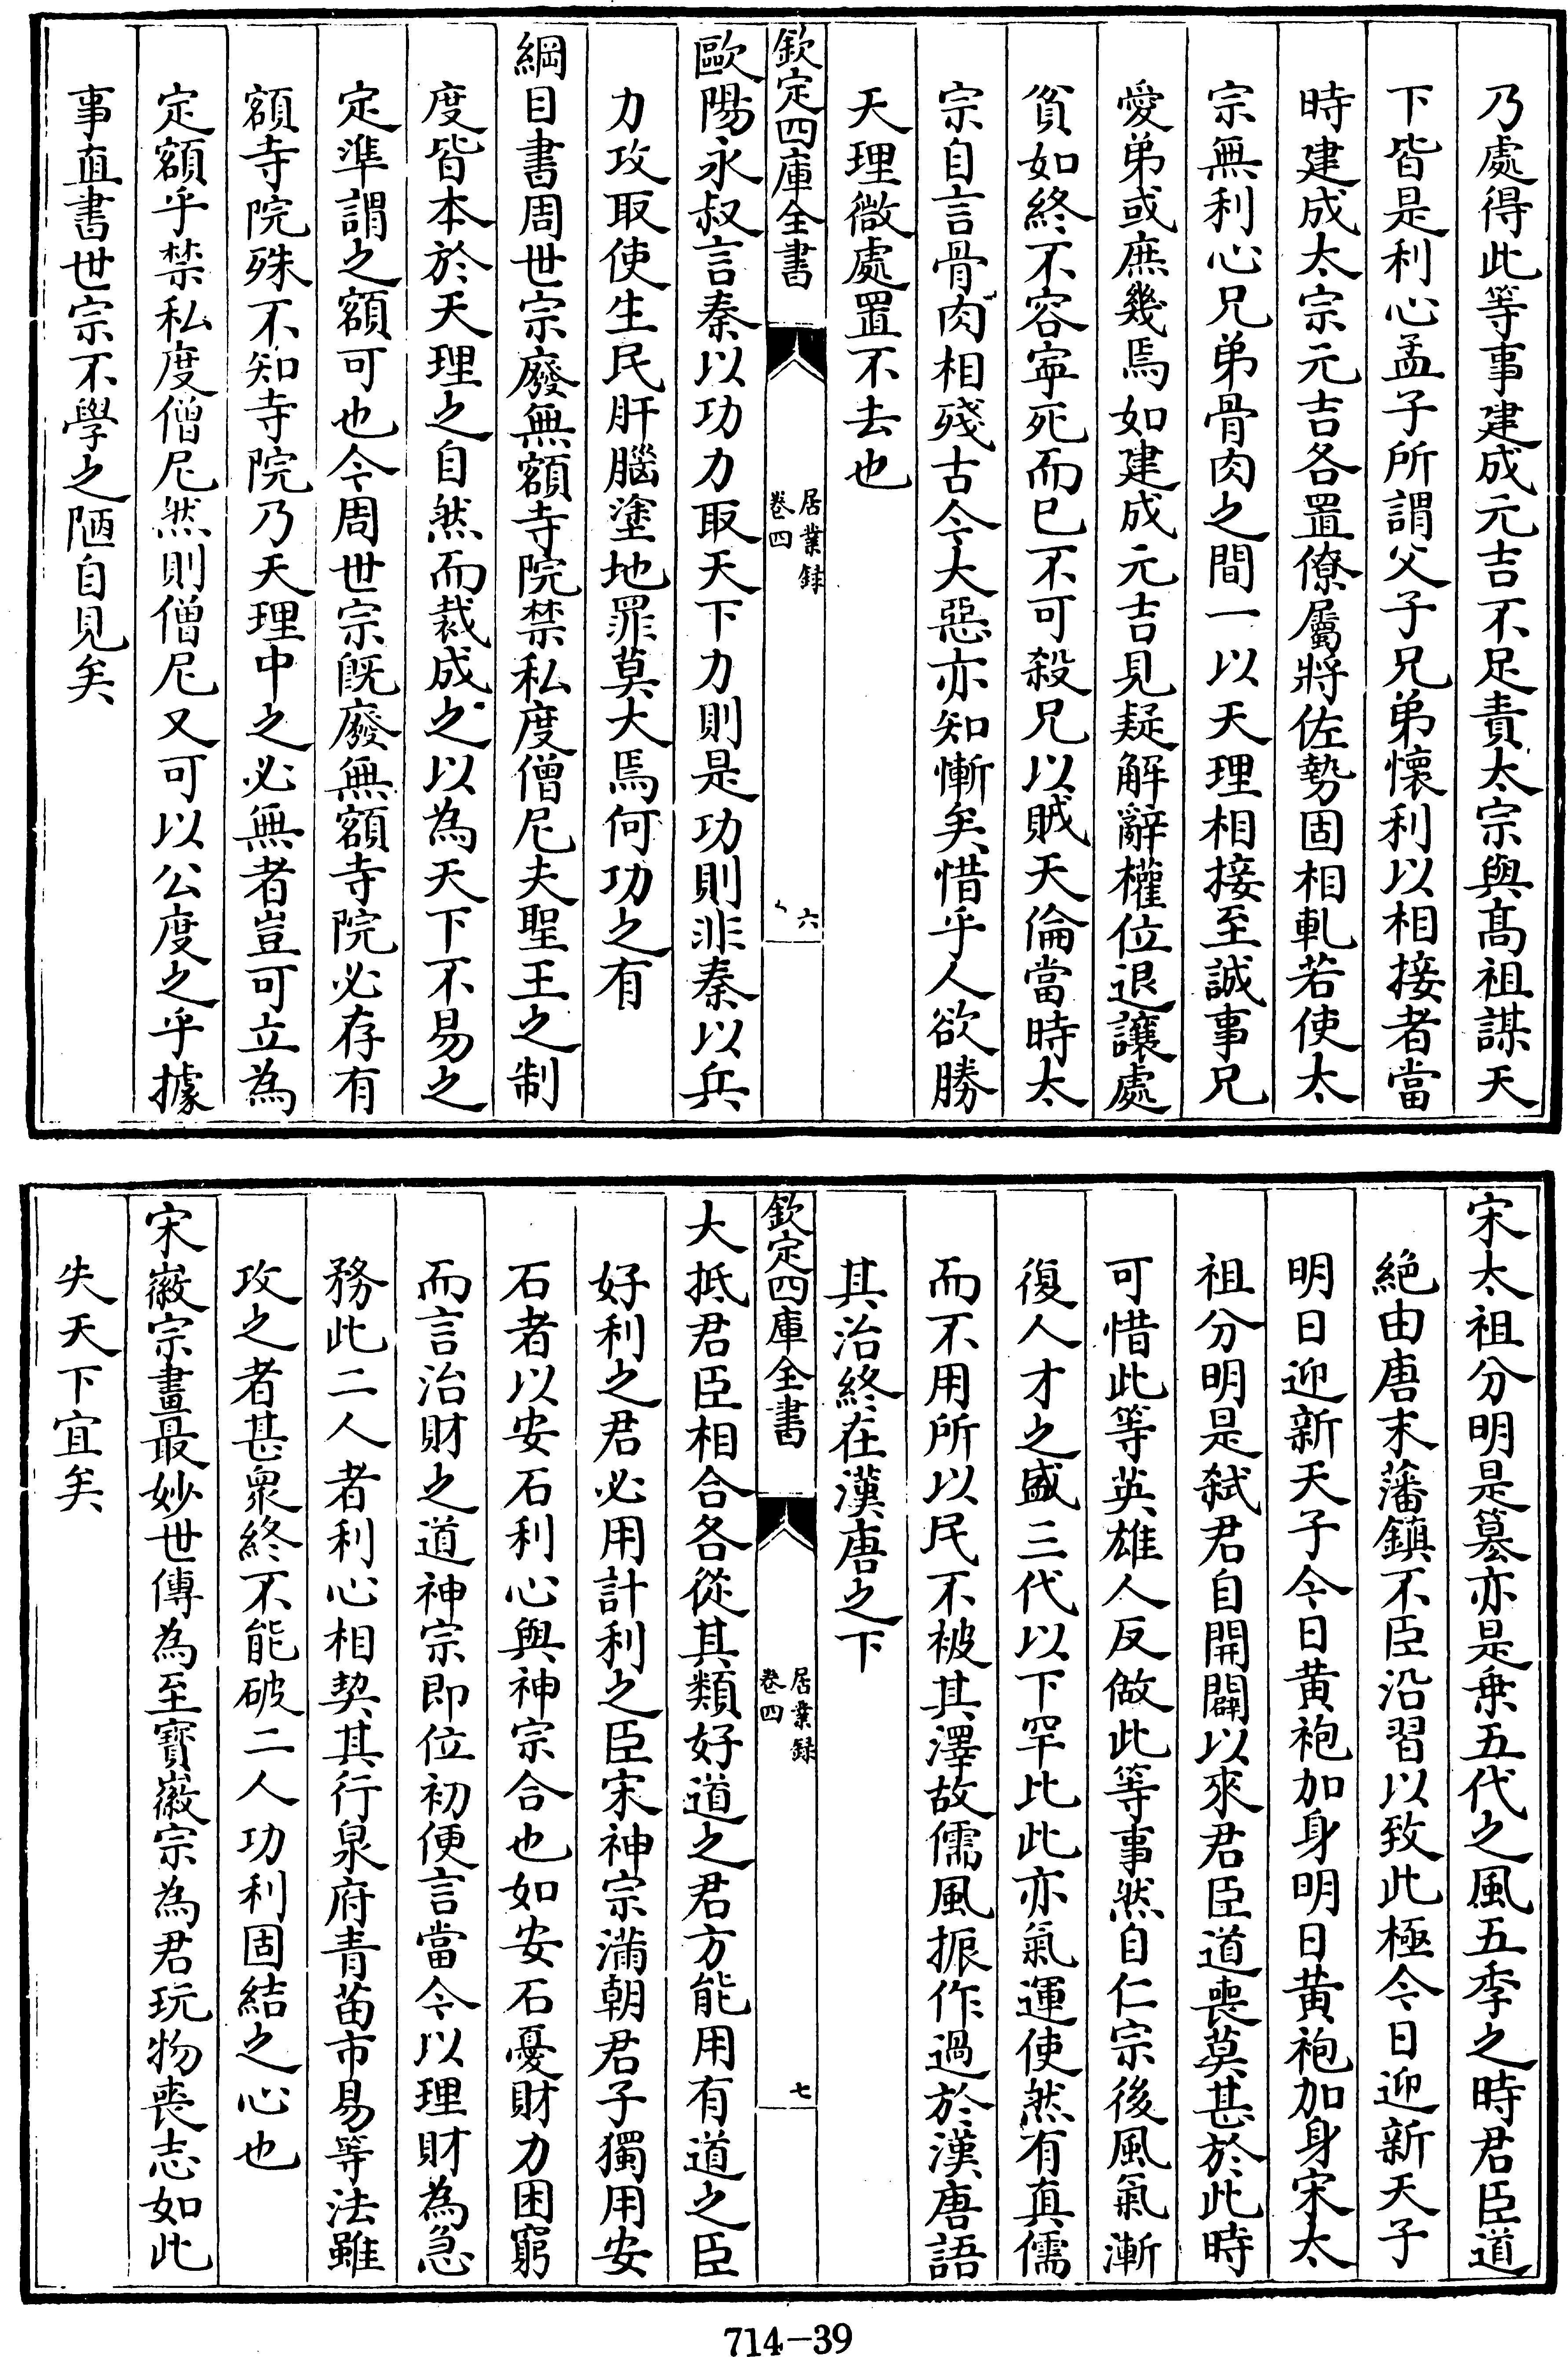 乃處得此等事建成元吉不足責太宗與髙祖謀天
下皆是利心孟子所謂父子兄弟懐利以相接者當
時建成太宗元吉各置僚屬將佐勢固相軋若使太
宗無利心兄弟骨肉之間一以天理相接至誠事兄
愛弟或庶幾焉如建成元吉見疑解辭權位退讓處
貧如終不容寜死而已不可殺兄以賊天倫當時太
宗自言骨肉相殘古今大惡亦知慚矣惜乎人欲勝
天理微處置不去也
欽定四庫全書
居業録
卷四
六
歐陽永叔言秦以功力取天下力則是功則非秦以兵
力攻取使生民肝腦塗地罪莫大焉何功之有
綱目書周世宗廢無額寺院禁私度僧尼夫聖王之制
度皆本於天理之自然而裁成之以為天下不易之
定準謂之額可也今周世宗旣廢無額寺院必存有
額寺院殊不知寺院乃天理中之必無者豈可立為
定額乎禁私度僧尼然則僧尼又可以公度之乎據
事直書世宗不學之陋自見矣
宋太祖分明是簒亦是乗五代之風五季之時君臣道
絶由唐末藩鎮不臣沿習以致此極今日迎新天子
明日迎新天子今日黄袍加身明日黄袍加身宋太
祖分明是弑君自開闢以來君臣道喪莫甚於此時
可惜此等英雄人反做此等事然自仁宗後風氣漸
復人才之盛三代以下罕比此亦氣運使然有真儒
而不用所以民不被其澤故儒風振作過於漢唐語
其治終在漢唐之下
欽定四庫全書
居業録
卷四
七
大抵君臣相合各從其類好道之君方能用有道之臣
好利之君必用計利之臣宋神宗滿朝君子獨用安
石者以安石利心與神宗合也如安石憂財力困窮
而言治財之道神宗即位初便言當今以理財為急
務此二人者利心相契其行泉府青苗市易等法雖
攻之者甚衆終不能破二人功利固結之心也
宋徽宗畫最妙世傳為至寳徽宗為君玩物喪志如此
失天下宜矣
714-39